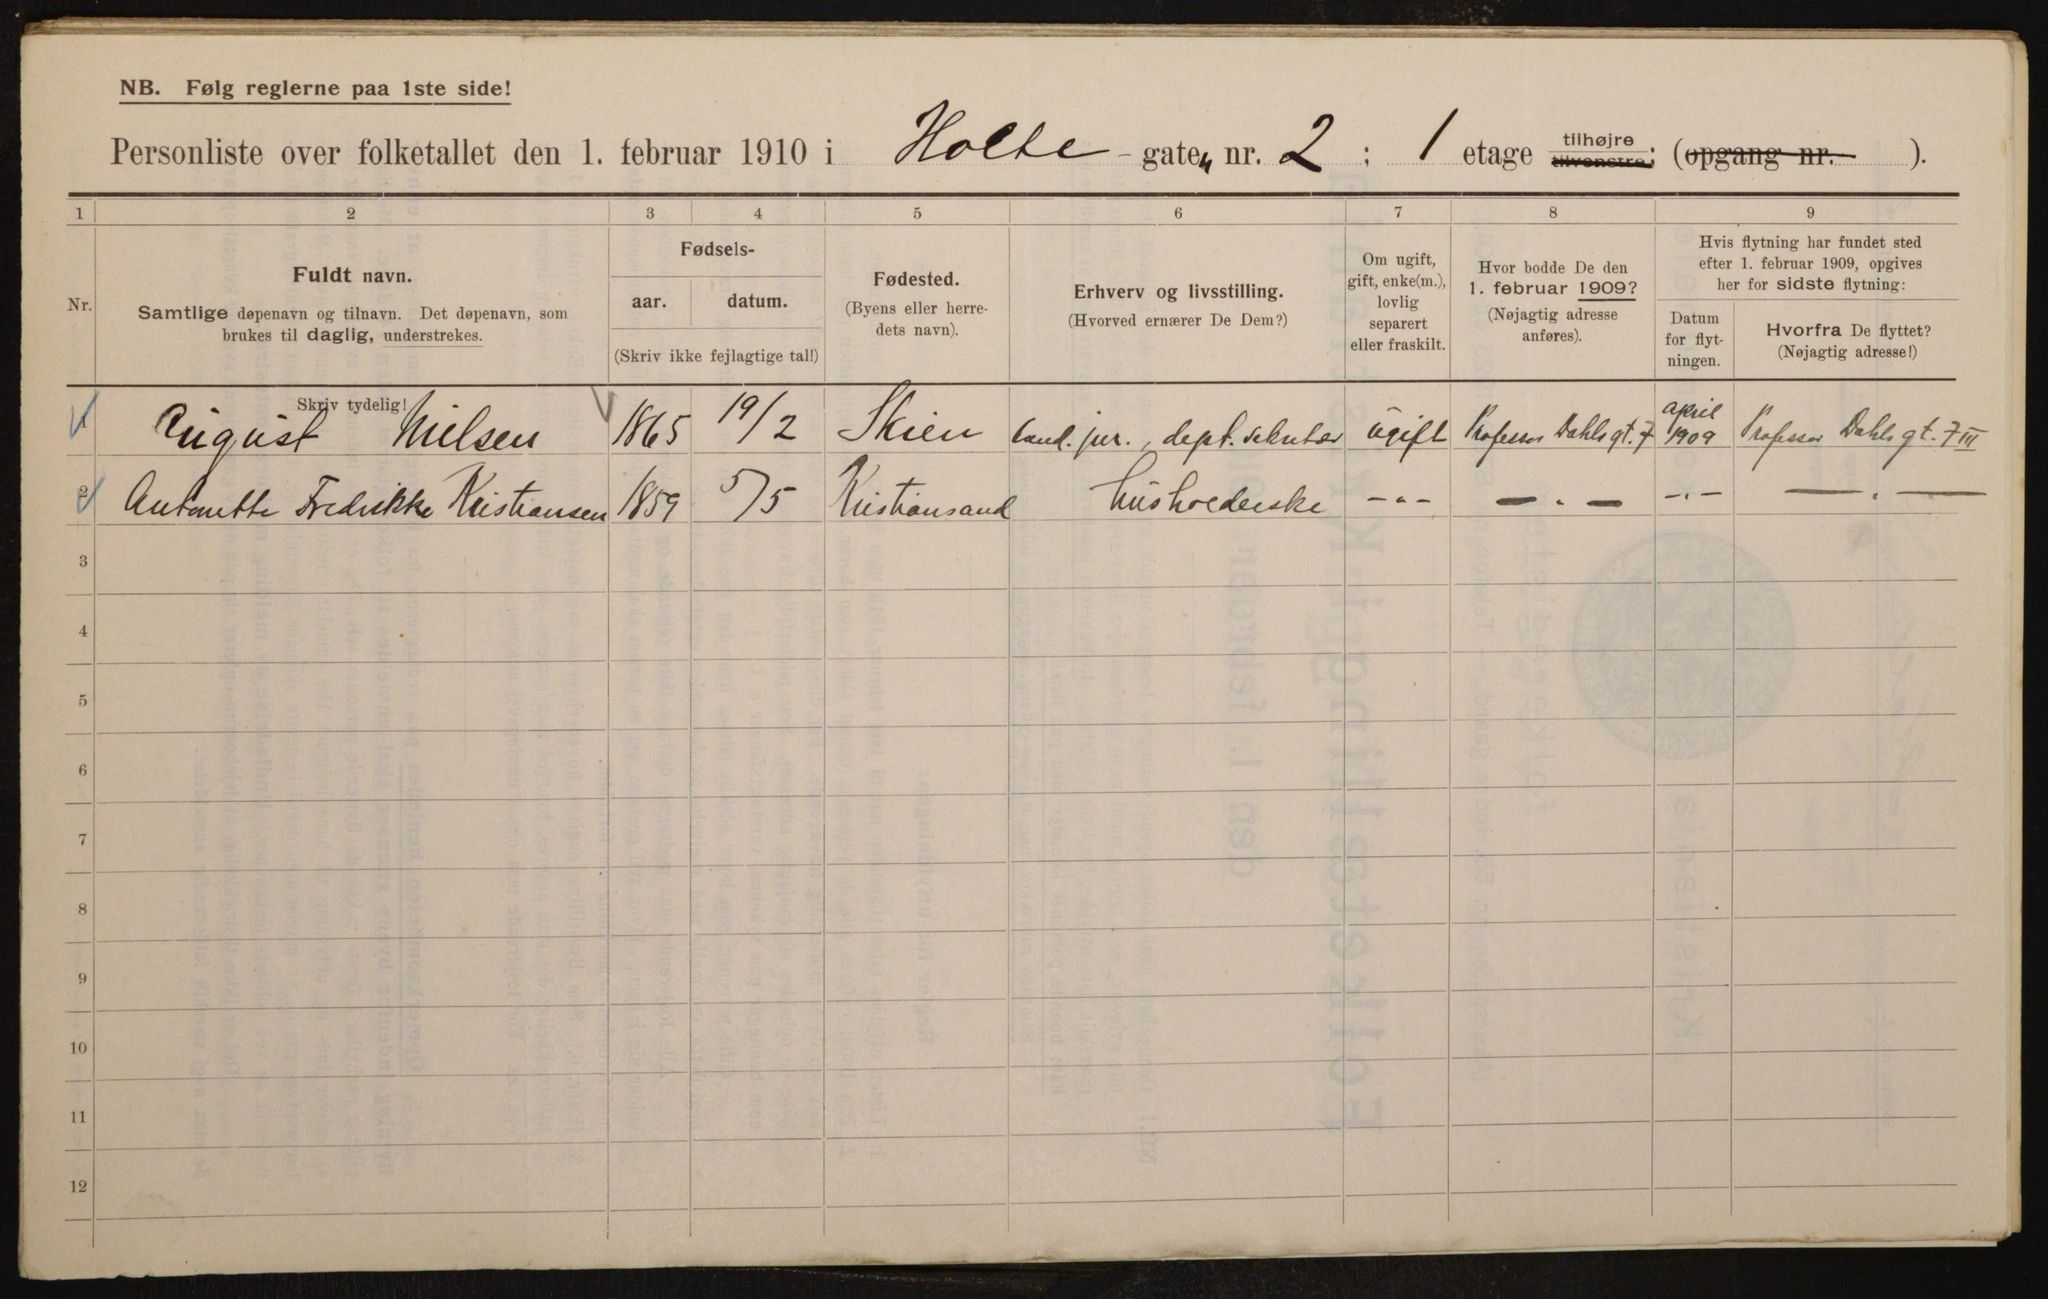 NB. Følg reglerne paa 1ste side!
Personliste over folketallet den 1. februar 1910 i Holte-gaten nr. 2; 1 etage tilhøjre tilvenstre; (opgang nr. ).
1 2 3 4 5 6 7 8 9
Nr.
Fuldt navn.
Samtlige døpenavn og tilnavn. Det døpenavn, som
brukes til daglig, understrekes.
Fødsels-
aar. datum.
(Skriv ikke fejlagtige tal!)
Fødested.
(Byens eller herre-
dets navn).
Erhverv og livsstilling.
(Hvorved ernærer De Dem?)
Om ugift,
gift, enke(m.),
lovlig
separert
eller fraskilt.
Hvor bodde De den
1. februar 1909?
(Nøjagtig adresse
anføres).
Hvis flytning har fundet sted
efter 1. februar 1909, opgives
her for sidste flytning:
Datum
for flyt-
ningen.
Hvorfra De flyttet?
(Nøjagtig adresse!)
Skriv tydelig!
1 August Nielsen 1865 19/2 Skien Cand. jur., dept. sekretær ugift Professor Dahls gt. 7 april 1909 Professor Dahls gt. 7 III
2 Antonette Fredrikke Kristiansen 1859 5/5 Kristiansand husholderske -"- -"- -"- -"-
3
4
5
6
7
8
9
10
11
12